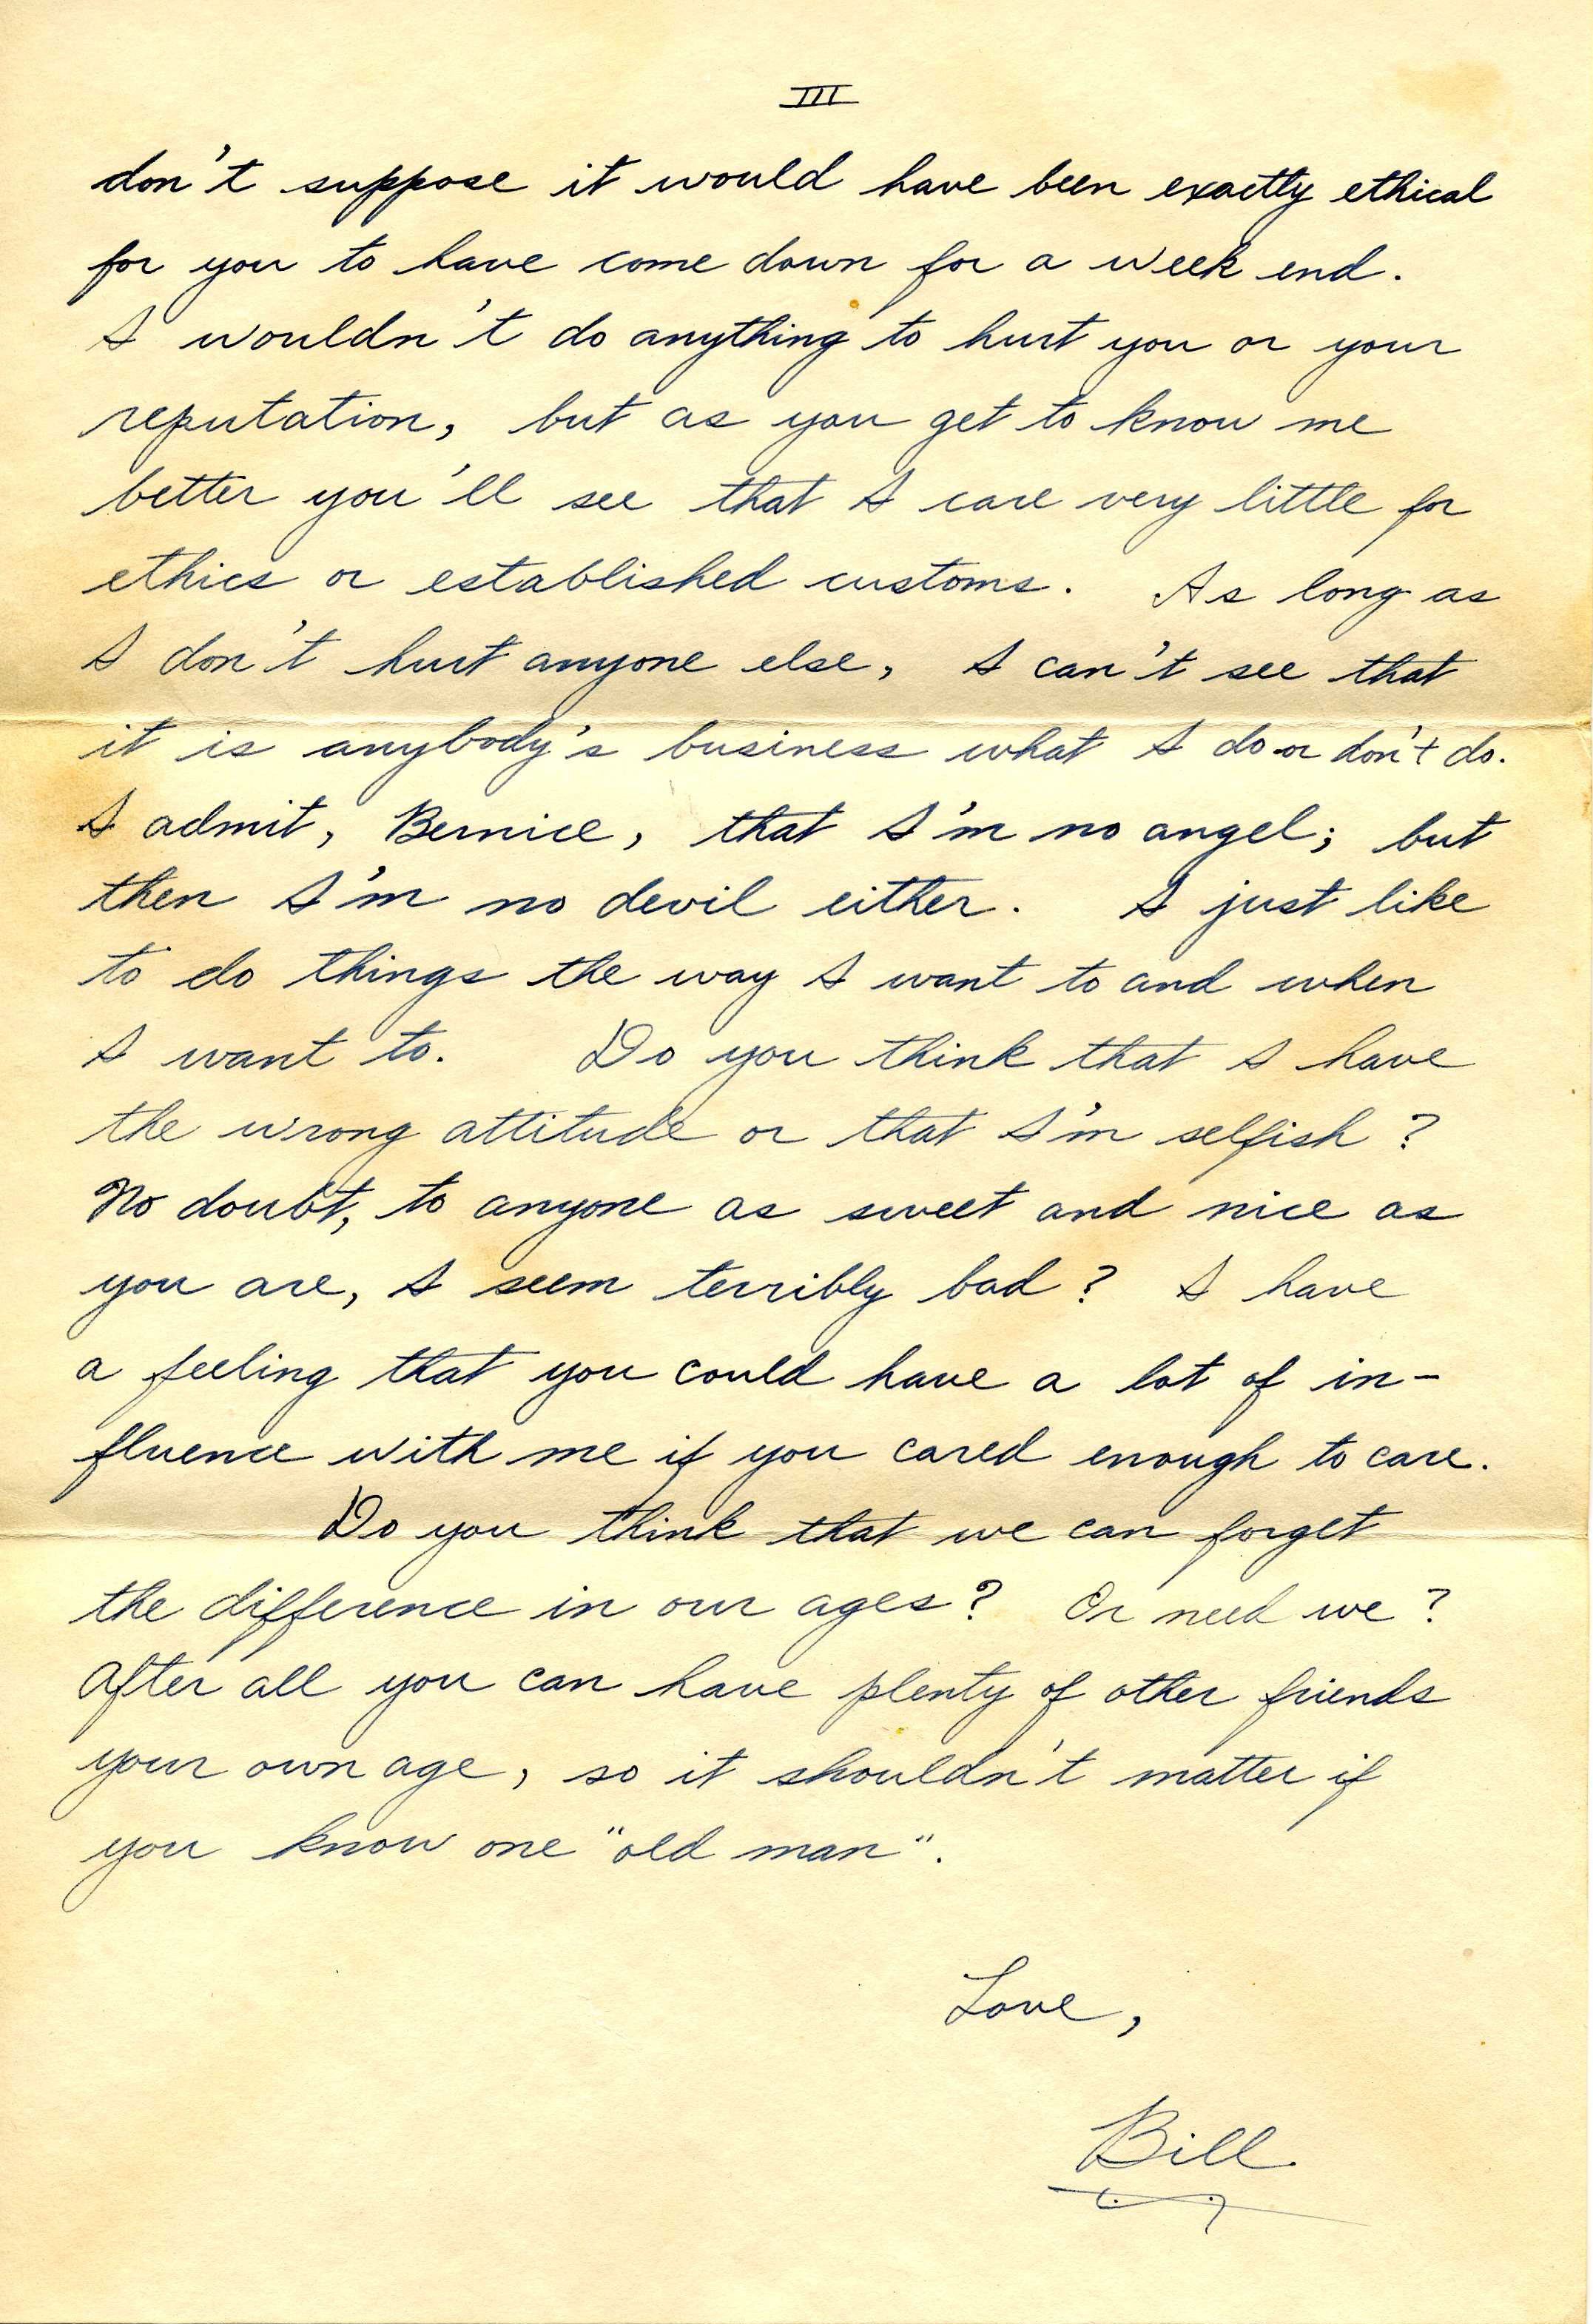 III
don't suppose it would have been exactly ethical
for you to have come down for a week end.
I wouldn't do anything to hurt you or your
reputation, but as you get to know me
better you'll see that I care very little for
ethics or established customs. As long as
I don't hurt anyone else, I can't see that
it is anybody's business what I do or don't do.
I admit, Bernice, that I'm no angel; but
then I'm no devil either. I just like
to do things the way I want to and when
I want to. Do you think that I have
the wrong attitude or that I'm selfish?
No doubt, to anyone as sweet and nice as
you are, I seem terribly bad? I have
a feeling that you could have a lot of in-
fluence with me if you cared enough to care.
Do you think that we can forget
the difference in our ages? Or need we?
After all you can have plenty of other friends
your own age, so it shouldn't matter if
you know one "old man".
Love,
Bill